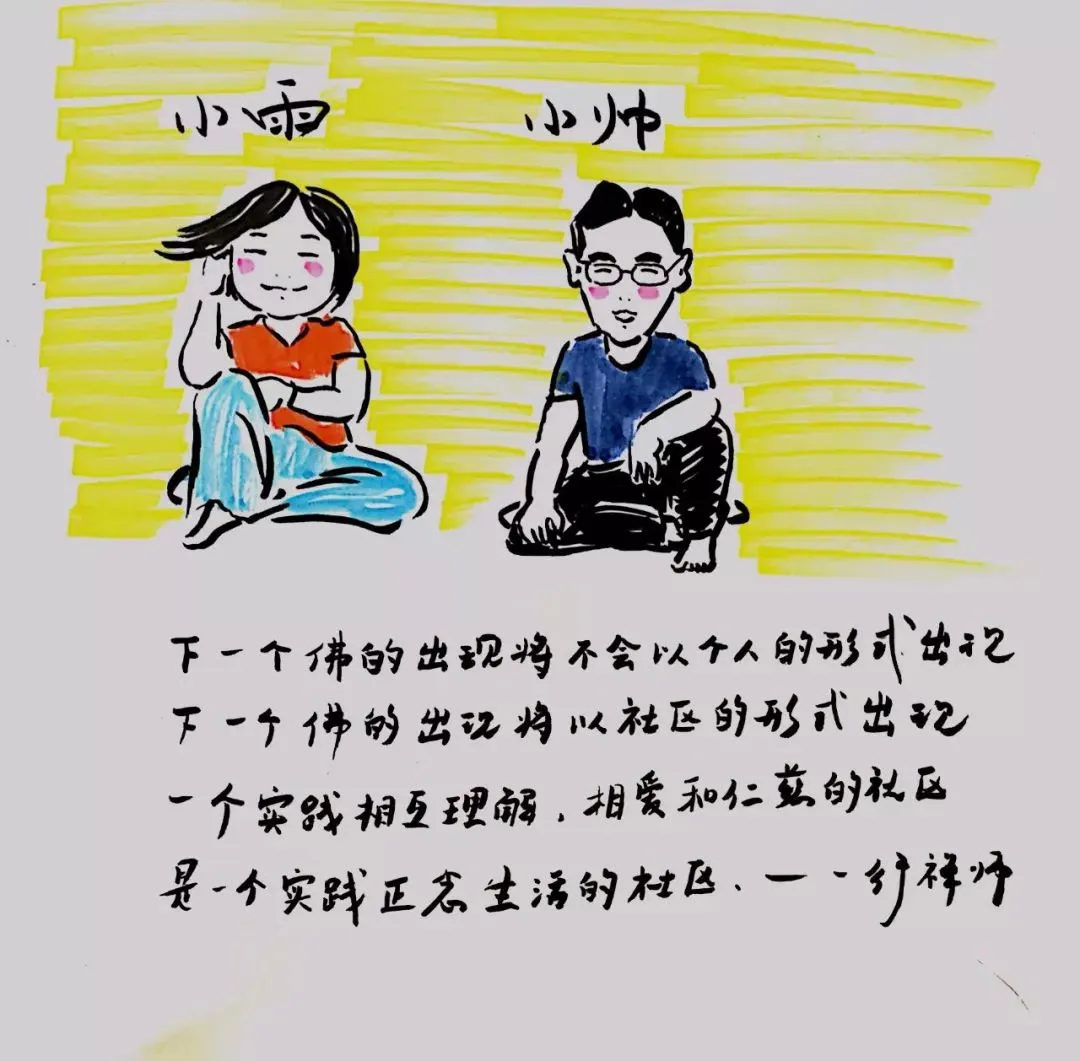 小雨 小帅
下一个佛的出现将不会以个人的形式出现
下一个佛的出现将以社区的形式出现
一个实践相互理解，相爱和仁慈的社区
是一个实践正念生活的社区、——一行禅师